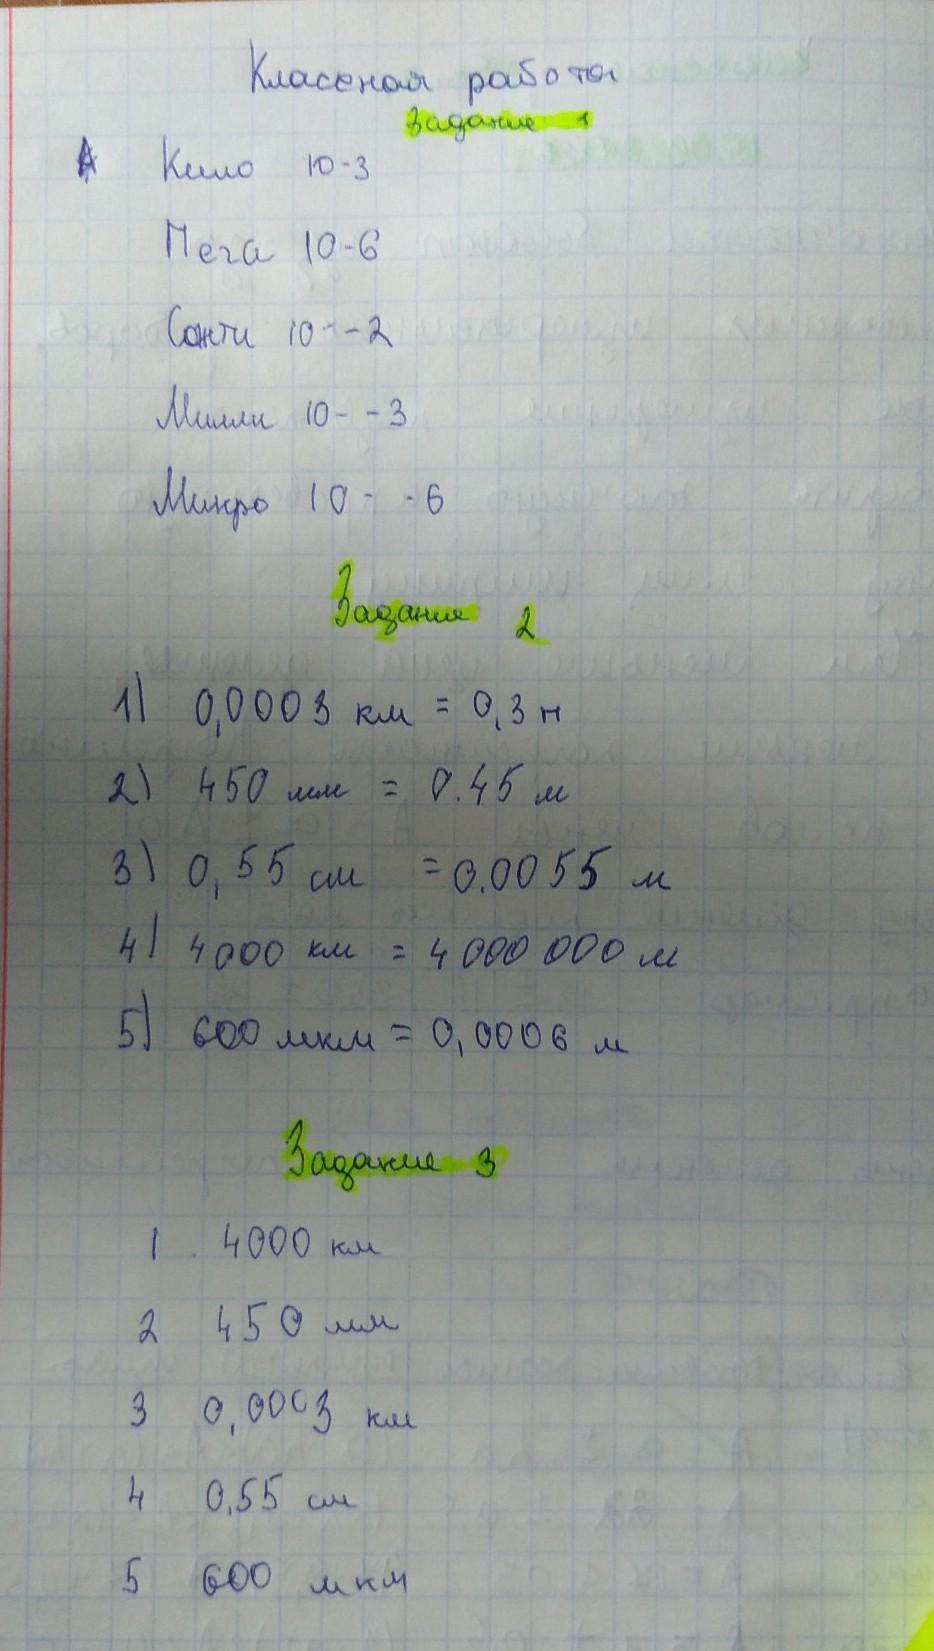 Классная работа
Задание 1
А Кило 10-3
Мега 10-6
Санти 10--2
Милли 10--3
Микро 10--6
Задание 2
1) 0,0003 км = 0,3 м
2) 450 мм = 0.45 м
3) 0,55 см = 0.0055 м
4) 4000 км = 4000 000 м
5) 600 мкм = 0,0006 м
Задание 3
1 4000 км
2 450 мм
3 0,0003 км
4 0,55 см
5 600 мкм